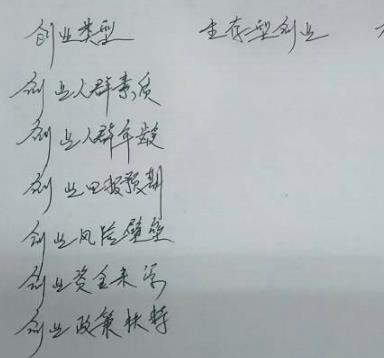 创业类型 生存型创业
创业人群素质
创业人群年龄
创业回报预期
创业风险壁垒
创业资金来源
创业政策扶持